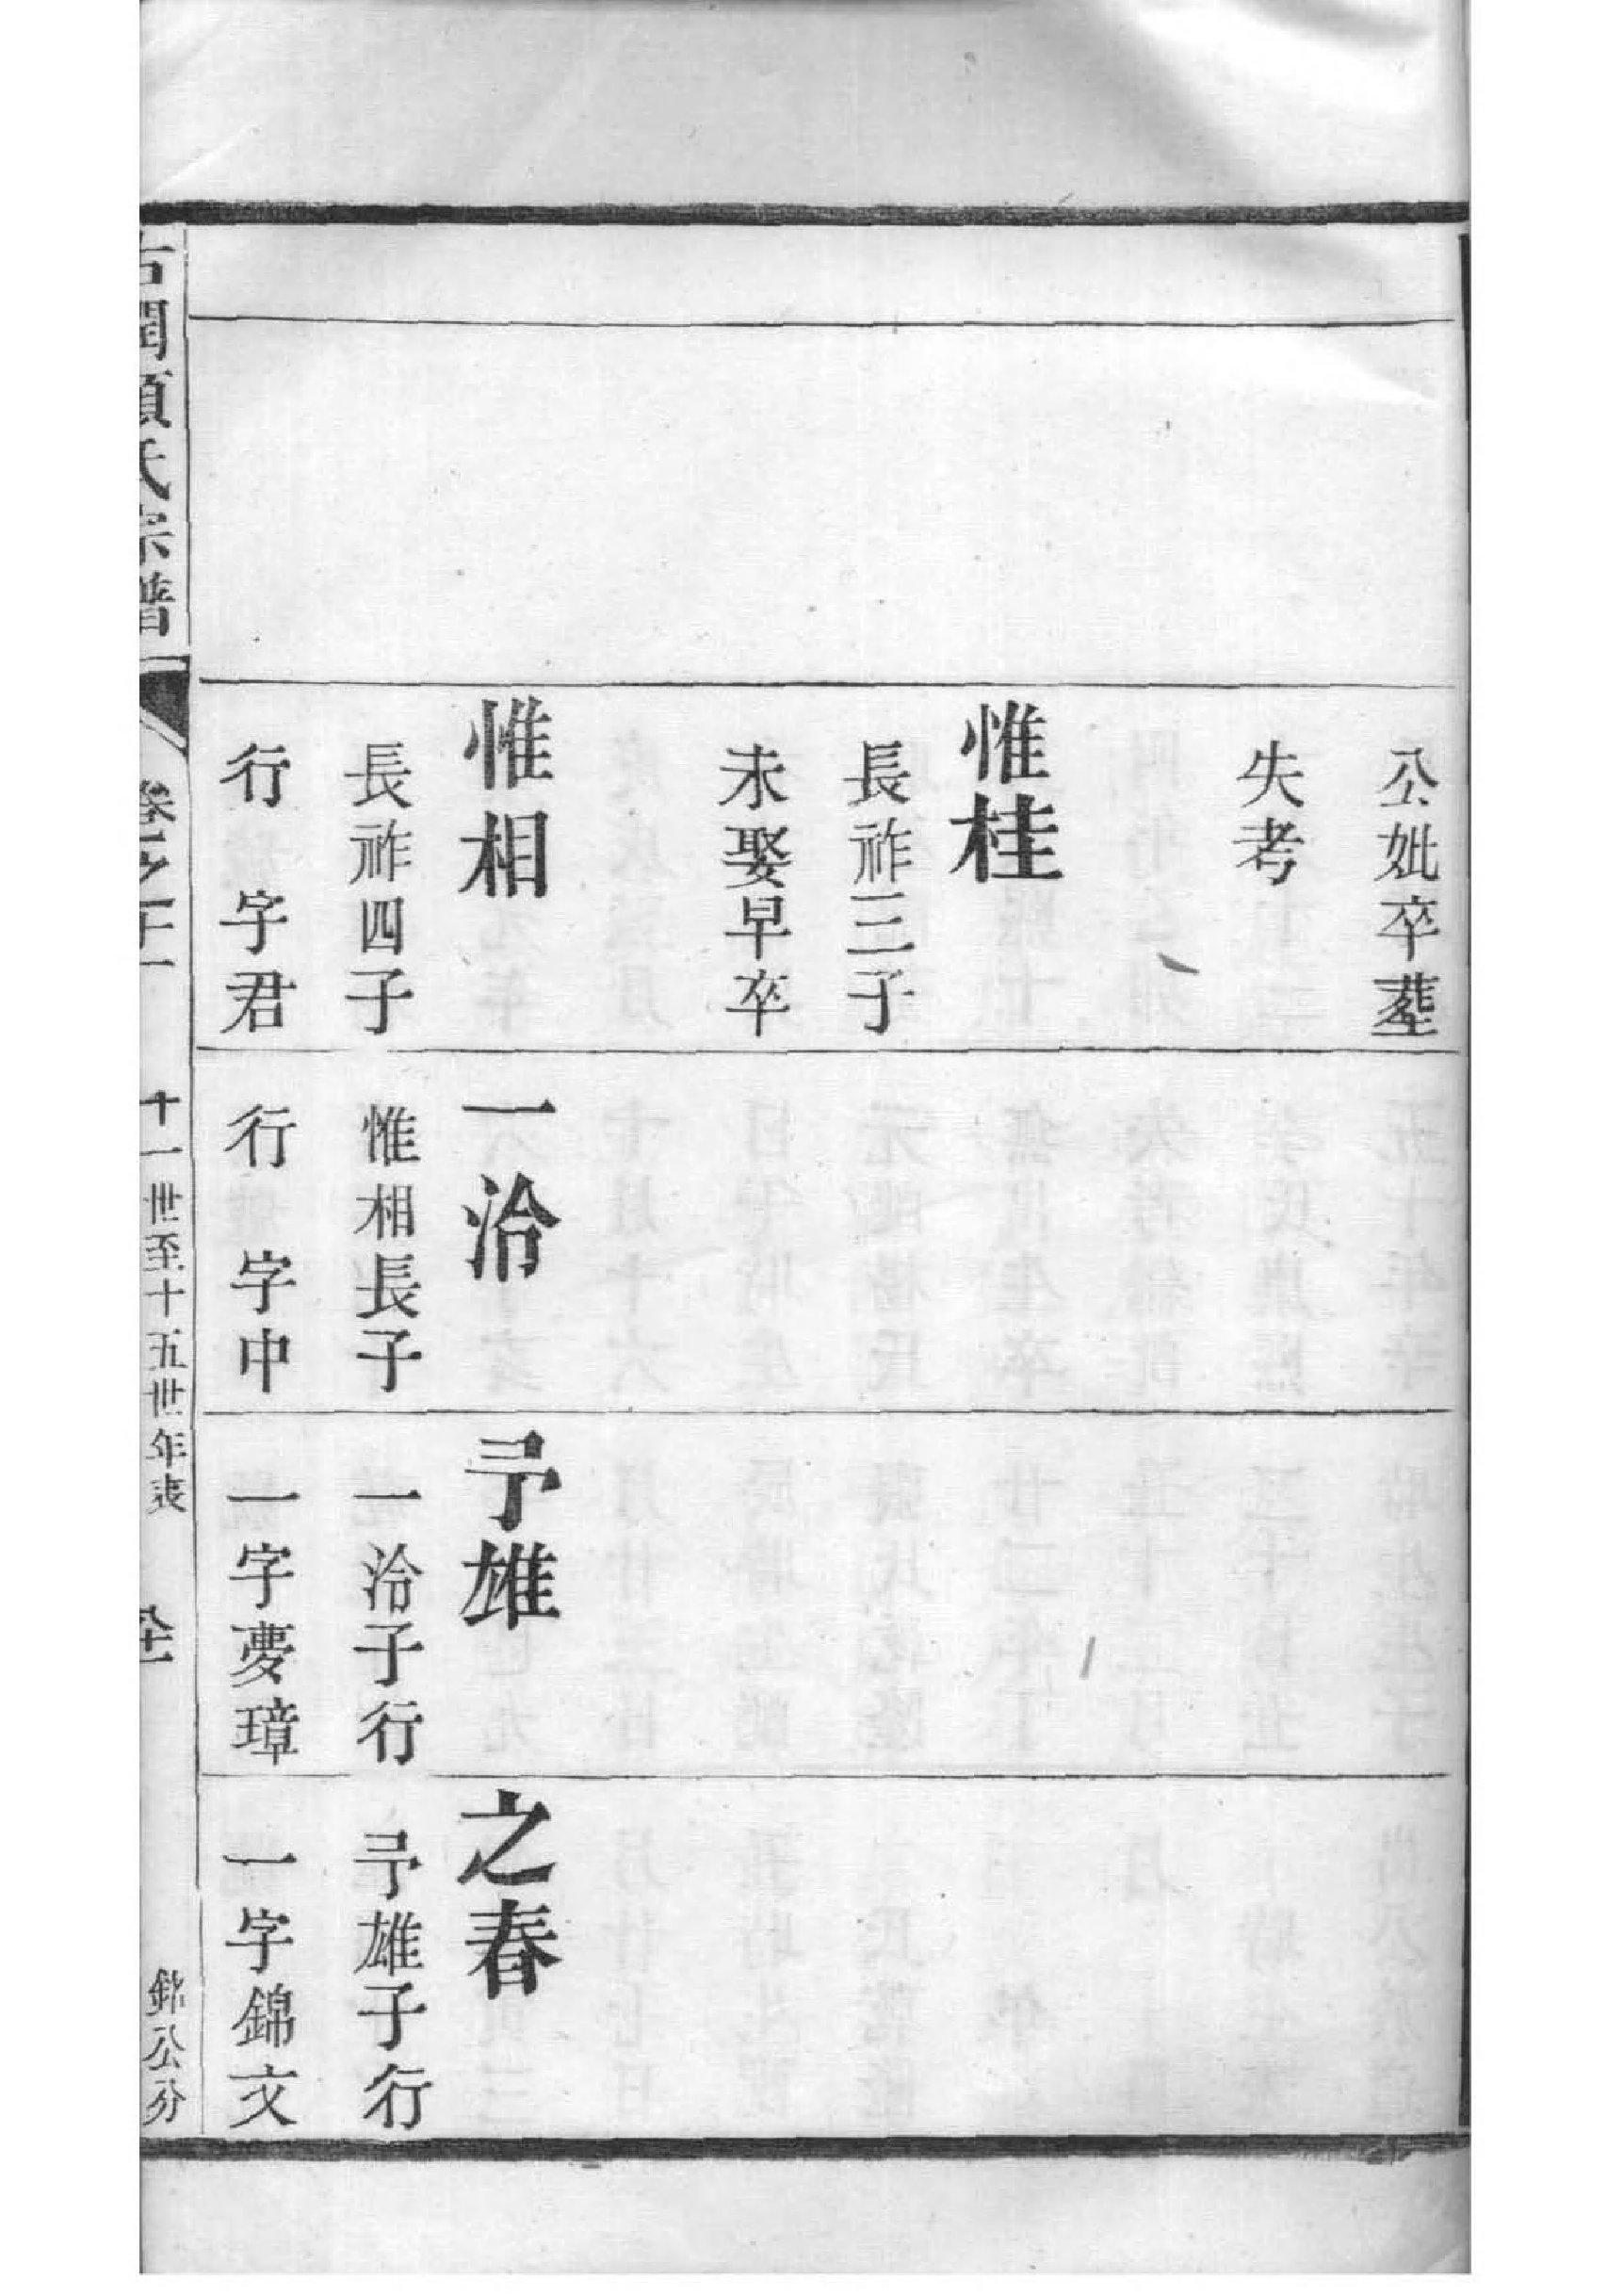 公妣卒葬
失考
惟桂
長祚三子
未娶早卒
惟相
長祚四子
行 字君
一洽
惟相長子
行 字中
予雄
一洽子行
一字夢璋
之春
予雄子行
一字錦文
氏宗譜
卷之十一
十一世至十五世年表
銘公分